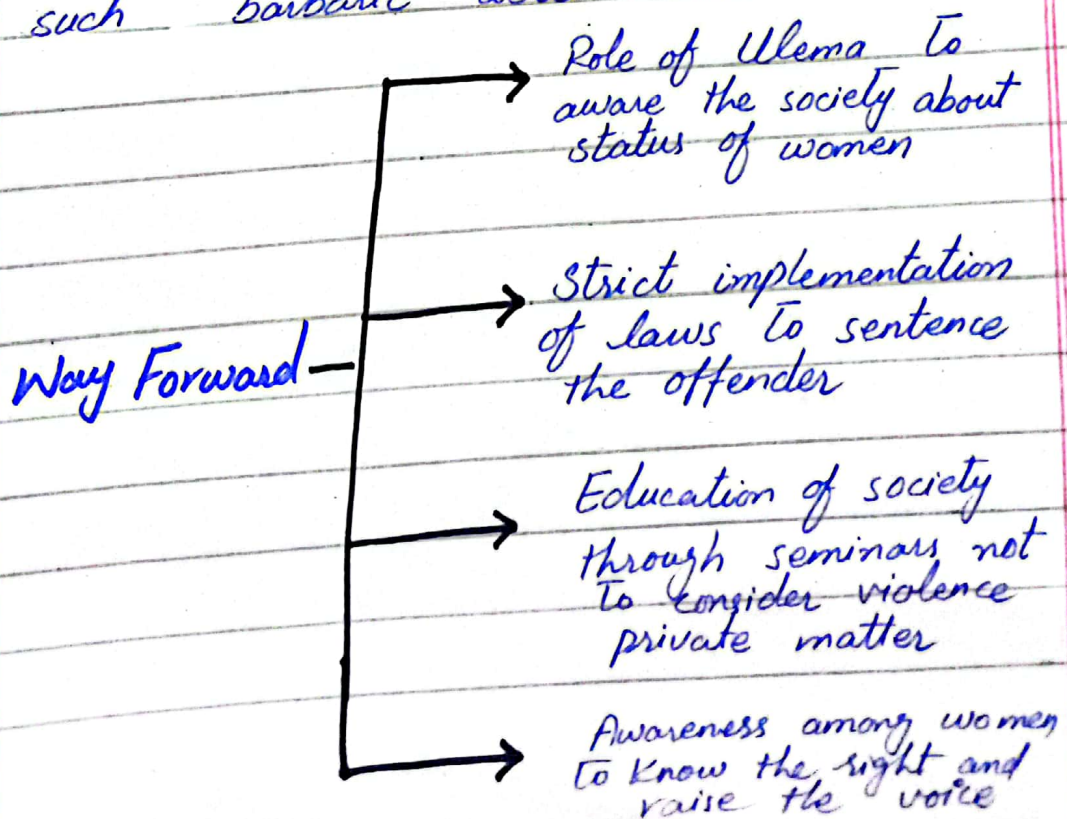 such barbaric
Role of Ulema to
aware the society about
status of women
Strict implementation
of laws to sentence
the offender
Way Forward
Education of society
through seminars not
to consider violence
private matter
Awareness among women
to know the right and
raise the voice